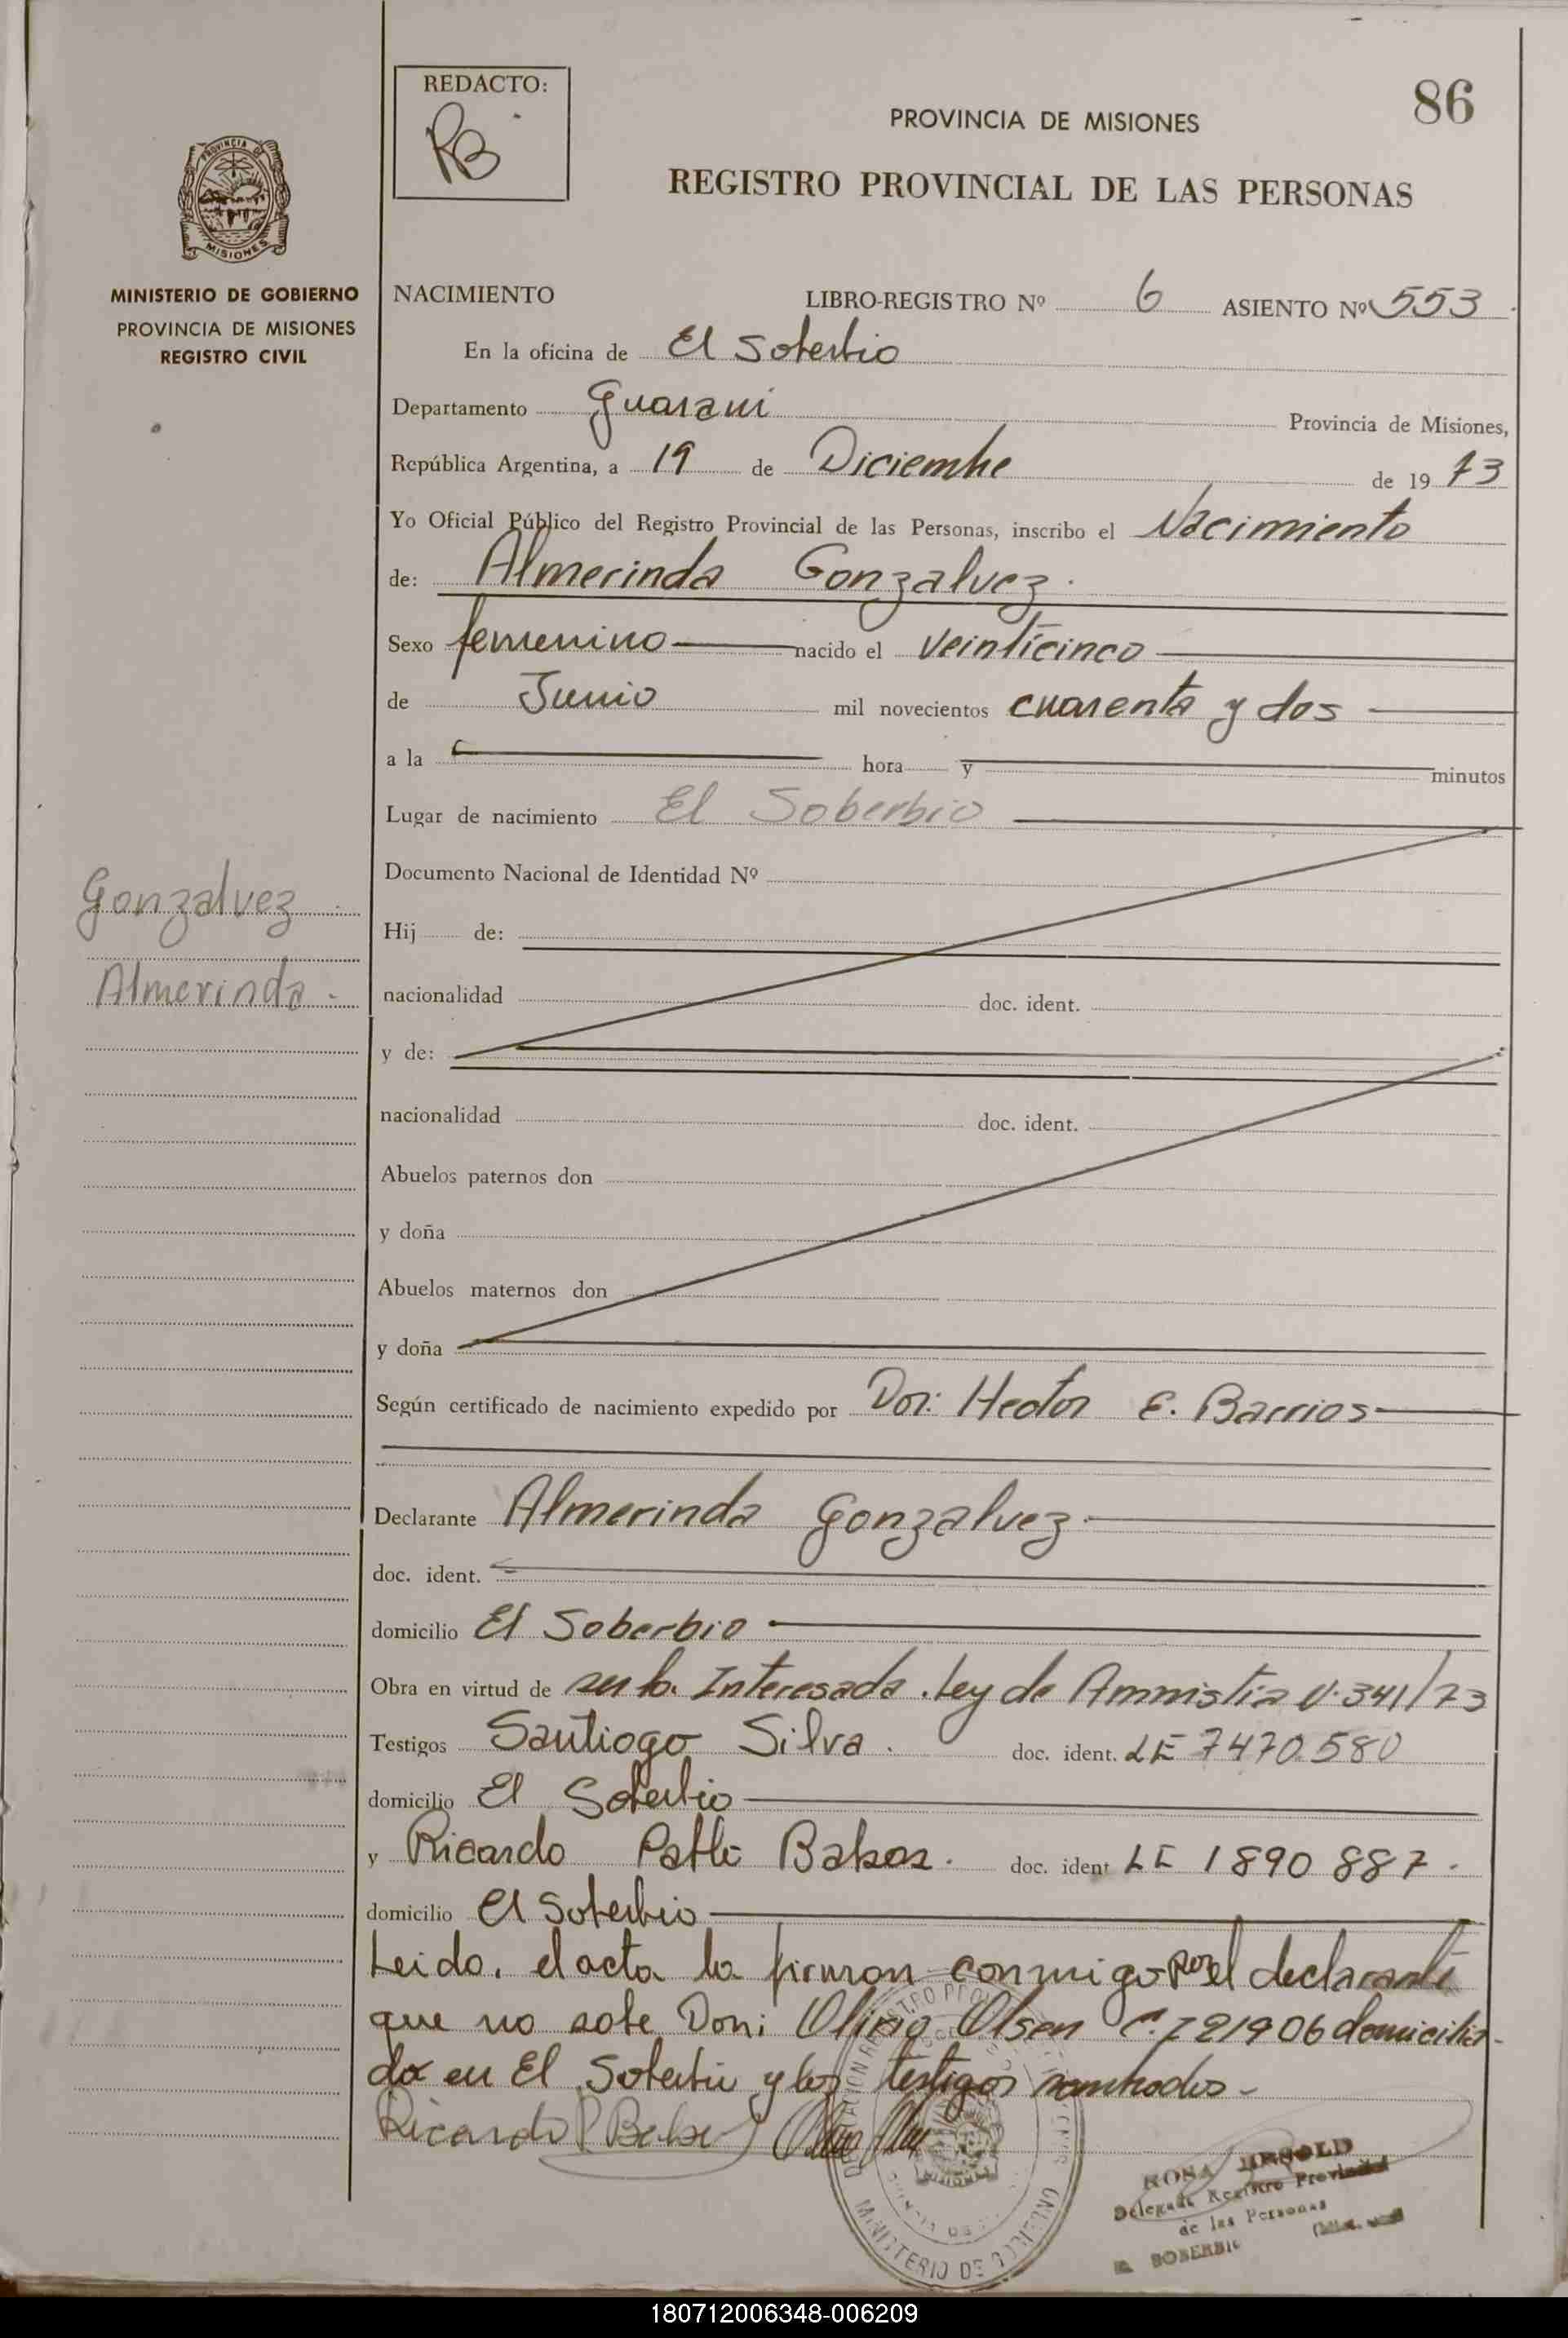 REDACTO:
RB
86
PROVINCIA DE MISIONES
REGISTRO PROVINCIAL DE LAS PERSONAS
PROVINCIA DE
MISIONES
MINISTERIO DE GOBIERNO
PROVINCIA DE MISIONES
REGISTRO CIVIL
NACIMIENTO LIBRO-REGISTRO Nº 6 ASIENTO Nº 553
En la oficina de El Soberbio
Departamento Guarani Provincia de Misiones,
República Argentina, a 19 de Diciembre de 19 73
Yo Oficial Público del Registro Provincial de las Personas, inscribo el Nacimiento
de: Almerinda Gonzalvez.
Sexo femenino nacido el veinticinco
de Junio mil novecientos cuarenta y dos
a la hora y minutos
Lugar de nacimiento El Soberbio
Documento Nacional de Identidad Nº
Gonzalvez
Hij de:
Almerinda.
nacionalidad doc. ident.
y de:
nacionalidad doc. ident.
Abuelos paternos don
y doña
Abuelos maternos don
y doña
Según certificado de nacimiento expedido por Dor: Hector E. Barrios
Declarante Almerinda Gonzalvez.
doc. ident.
domicilio El Soberbio
Obra en virtud de ser la Interesada. Ley de Ammistia 341/73
Testigos Santiago Silva. doc. ident. LE 7470.580
domicilio El Soberbio
y Ricardo Pablo doc. ident LE 1890 887.
domicilio El Soberbio
Leido, el acta la firman conmigo por el declarante
que no sabe Don: Olirio Olsen C.I 21906 domicilia-
do en El Soberbio y los testigos nombrados-
Ricardo P
MINISTERIO DE GOBIERNO
ROSA
Delegada Registro Provincial
de las Personas
SOBERBIO
180712006348-006209